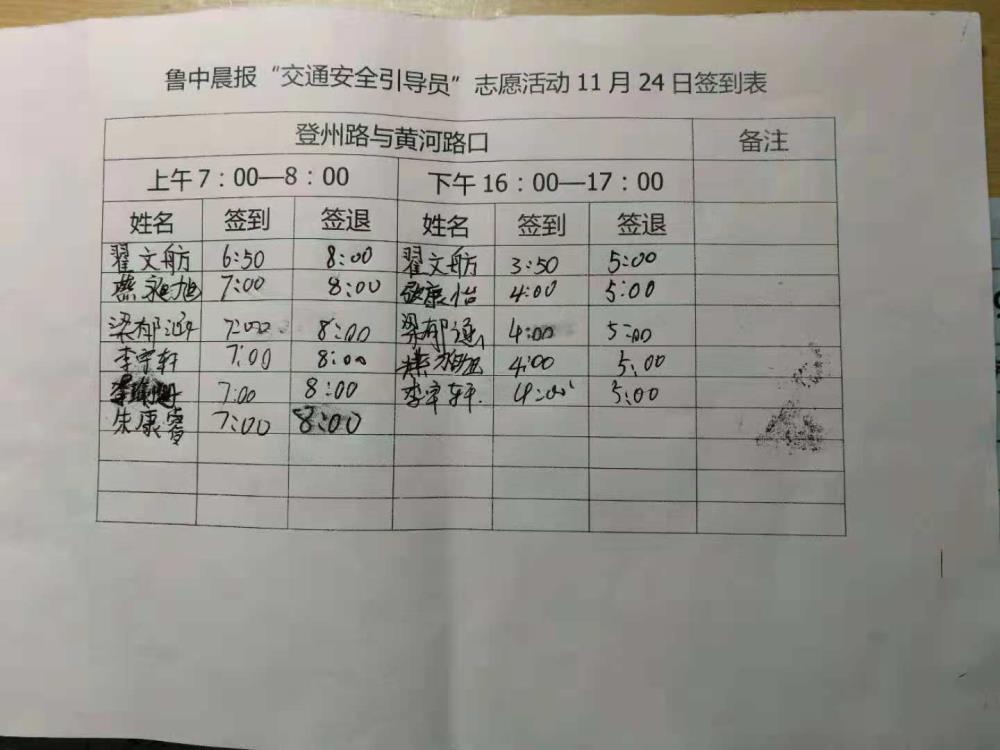 鲁中晨报“交通安全引导员”志愿活动11月24日签到表
登州路与黄河路口 备注
上午7：00—8：00 下午16：00—17：00
姓名 签到 签退 姓名 签到 签退
翟文舫 6:50 8:00 翟文舫 3:50 5:00
7:00 8:00 康怡 4:00 5:00
梁郁涵 7:00 8:00 梁郁涵 4:00 5:00
李宇轩 7:00 8:00 4:00 5:00
7:00 8:00 李宇轩 4:00 5:00
朱康睿 7:00 8:00